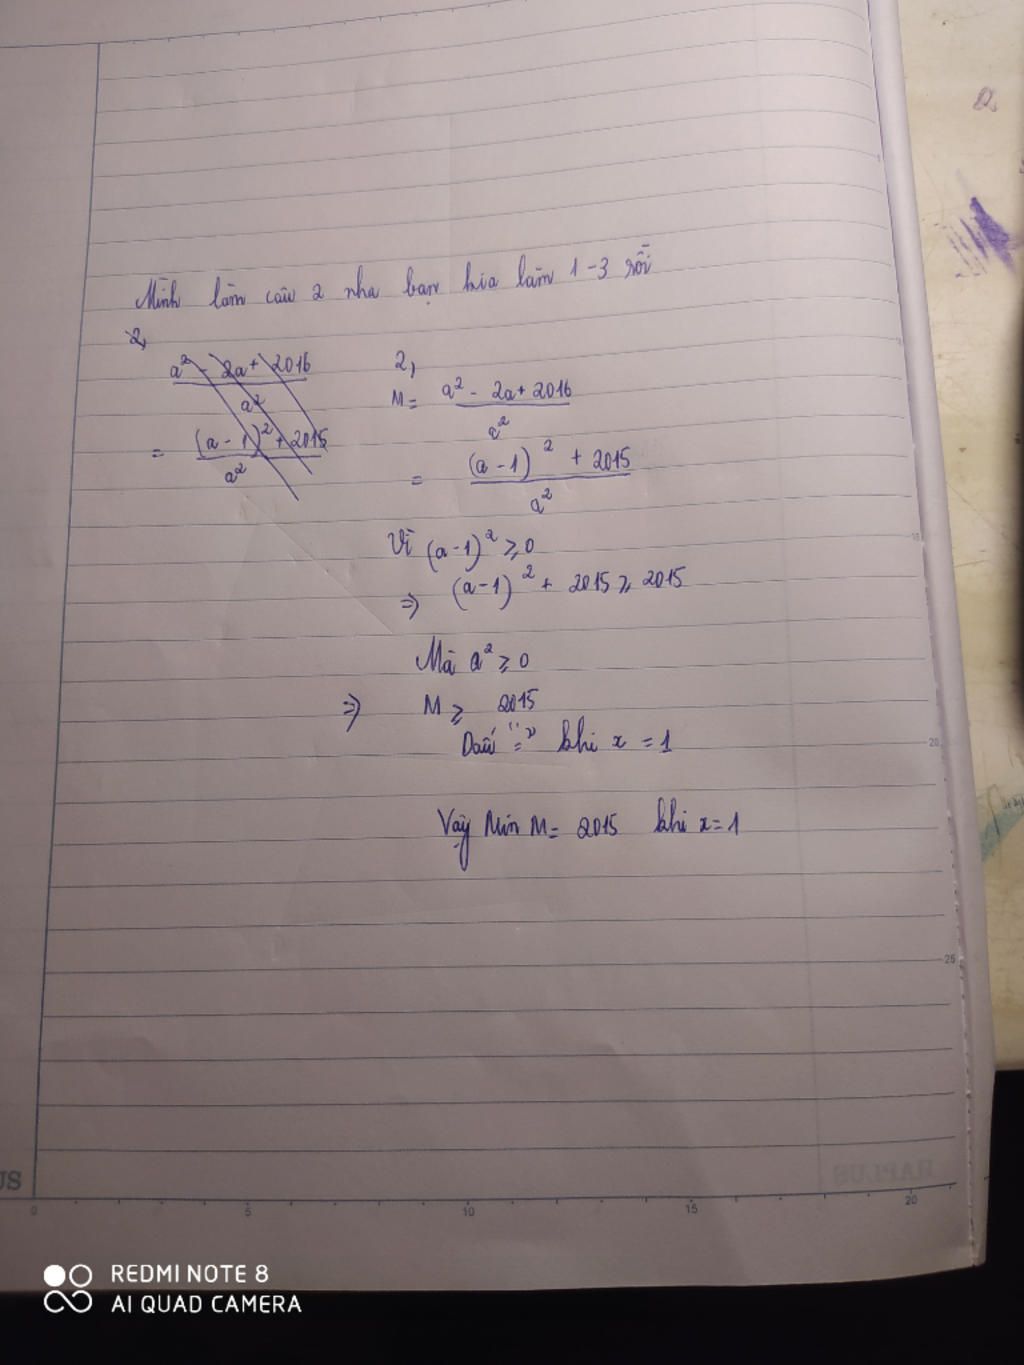 Mình làm câu 2 nha bạn kia làm 1-3 rồi
2,
a² - 2a + 2016
a²
= (a - 1)² + 2015
a²
2,
M = a² - 2a + 2016
a²
= (a - 1)² + 2015
a²
Vì (a-1)² ≥ 0
⇒ (a-1)² + 2015 ≥ 2015
Mà a² ≥ 0
⇒ M ≥ 2015
Dấu "=" khi x = 1
Vậy Min M = 2015 khi x = 1
5
10
15
20
18
20
25
0
US
RAPLUS
REDMI NOTE 8
AI QUAD CAMERA